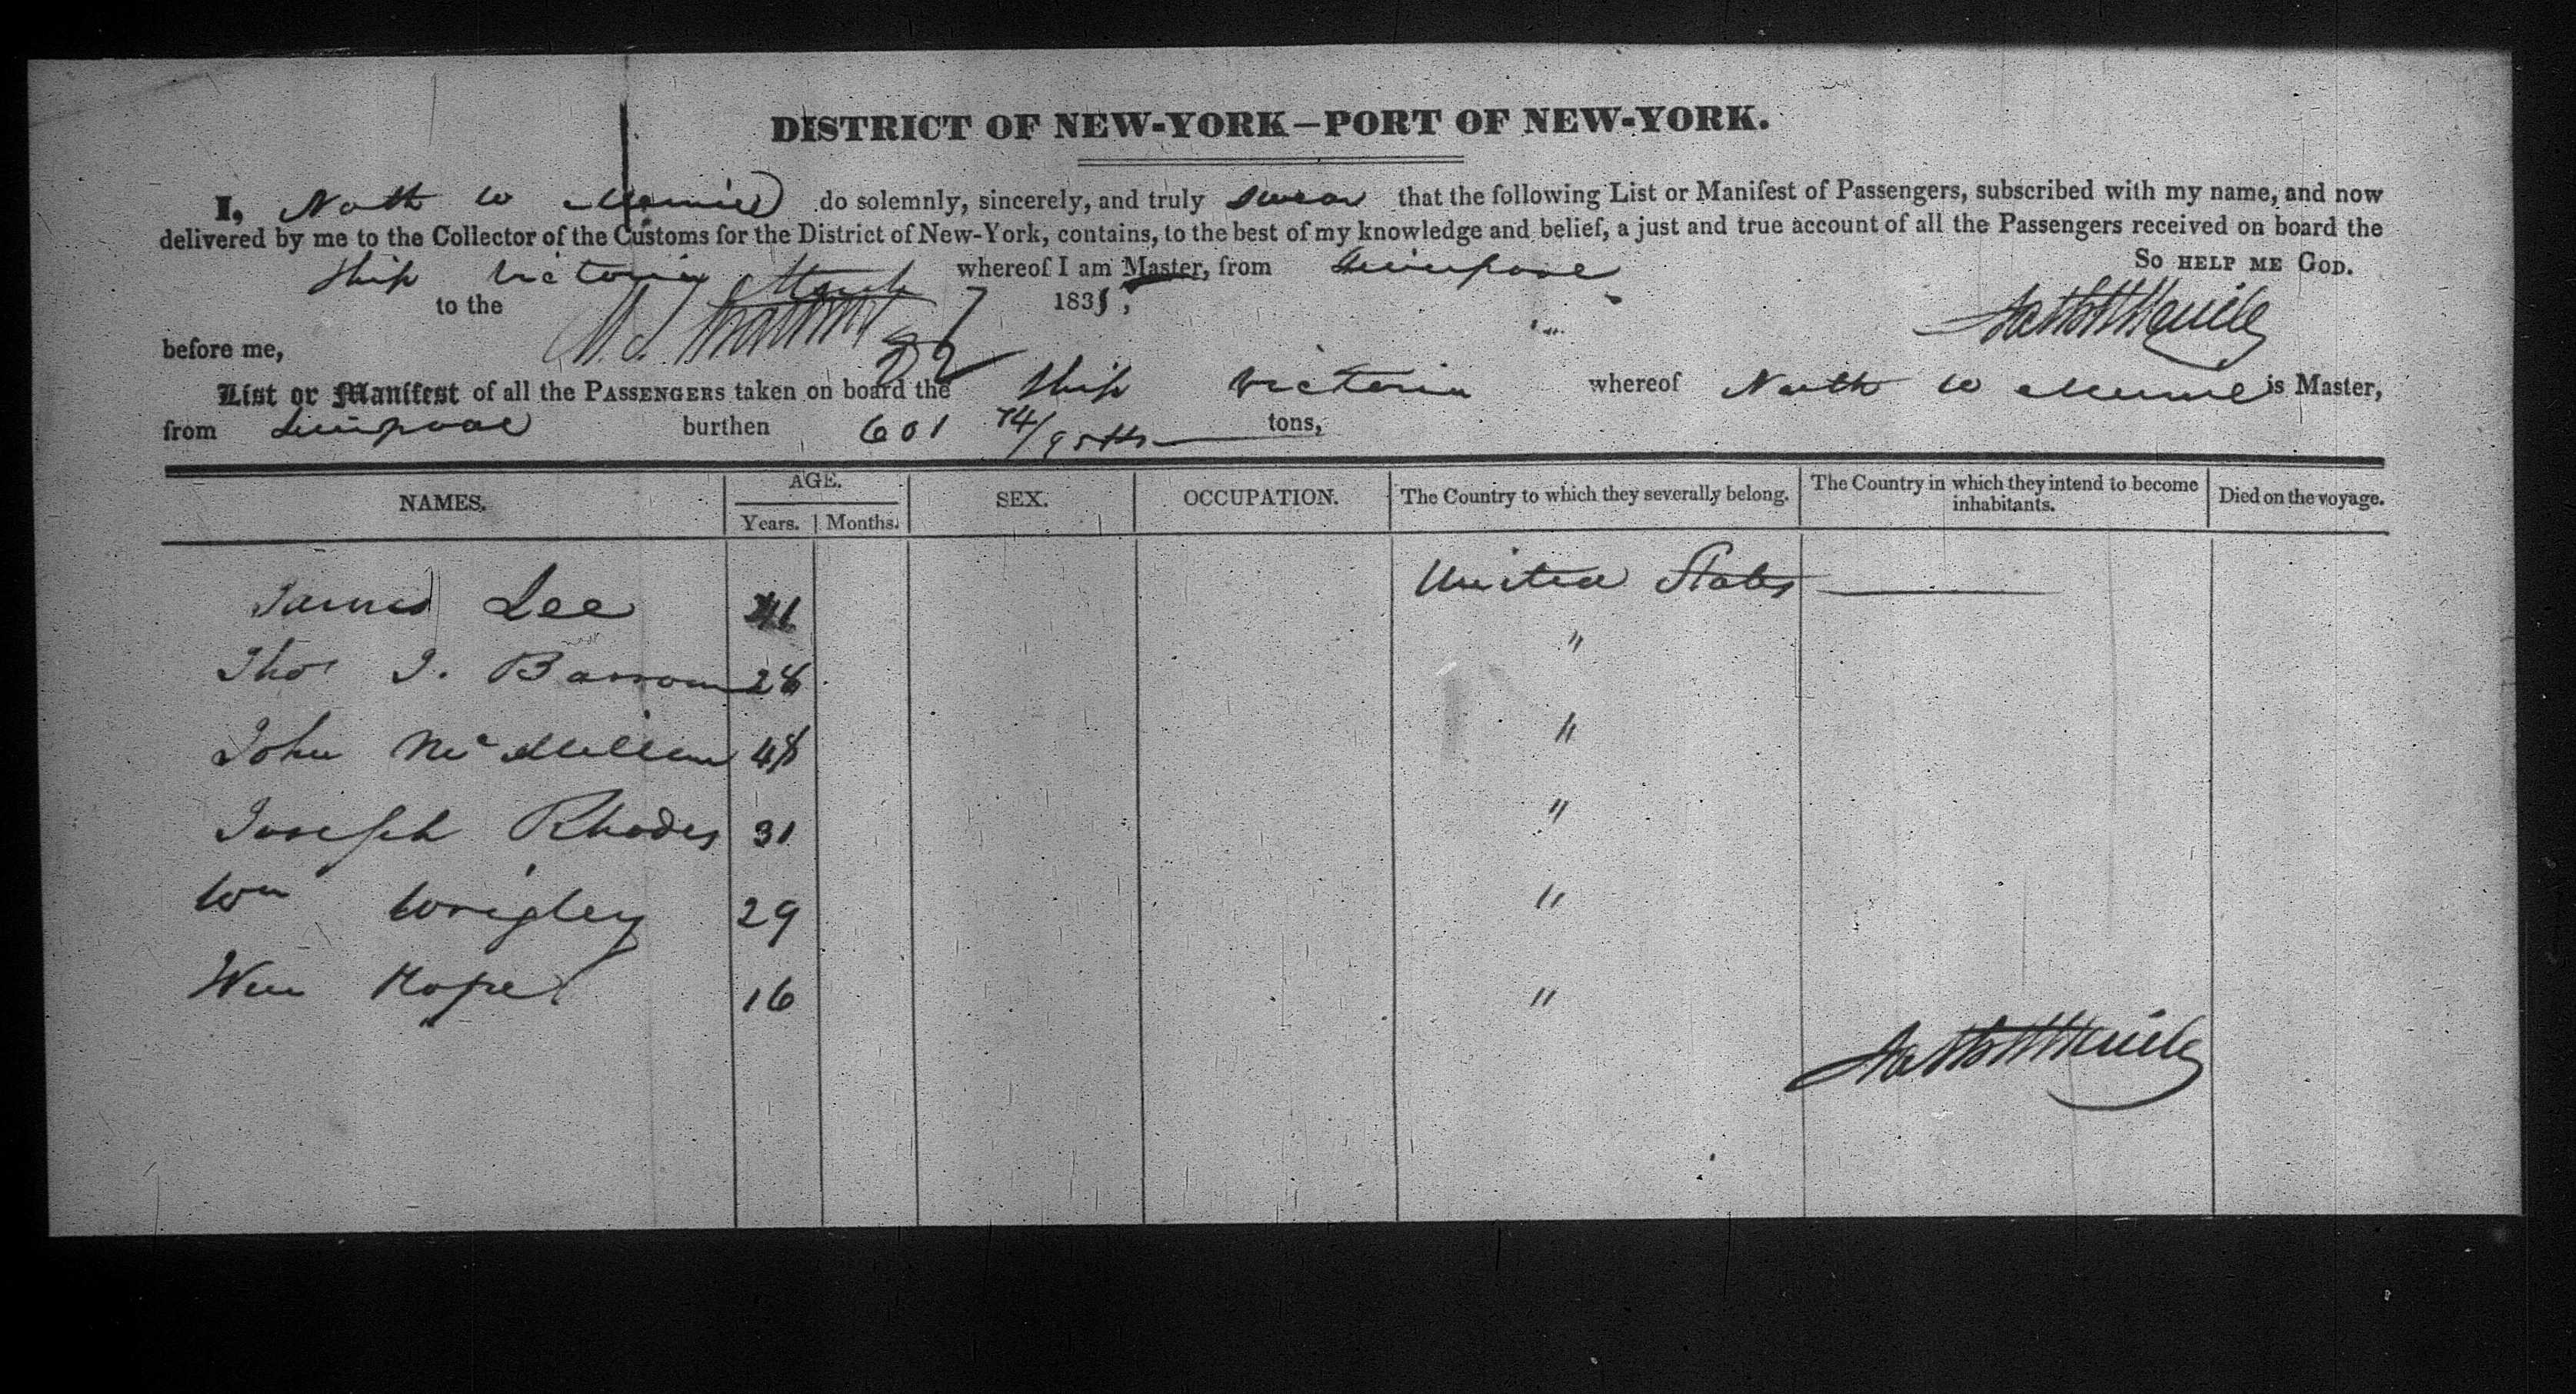 DISTRICT OF NEW-YORK—PORT OF NEW-YORK.
I, Nath W do solemnly, sincerely, and truly swear that the following List or Manifest of Passengers, subscribed with my name, and now
delivered by me to the Collector of the Customs for the District of New-York, contains, to the best of my knowledge and belief, a just and true account of all the Passengers received on board the
Ship Victoria whereof I am Master, from Liverpool So HELP ME GOD.
to the March 7 183
before me,
List or Manifest of all the PASSENGERS taken on board the Ship Victoria whereof Nath W is Master,
from Liverpool burthen 601 74/95ths tons,
NAMES. AGE. SEX. OCCUPATION. The Country to which they severally belong. The Country in which they intend to become inhabitants. Died on the voyage.
Years. Months.
James Lee 41 United States
Thos J. Barrow 28 "
John Mc 48 "
Joseph Rhodes 31 "
Wm Wrigley 29 "
Wm Hope 16 "